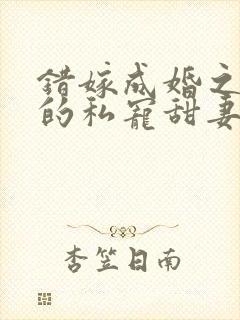 错嫁成婚之
的私宠甜妻
杏笠日南